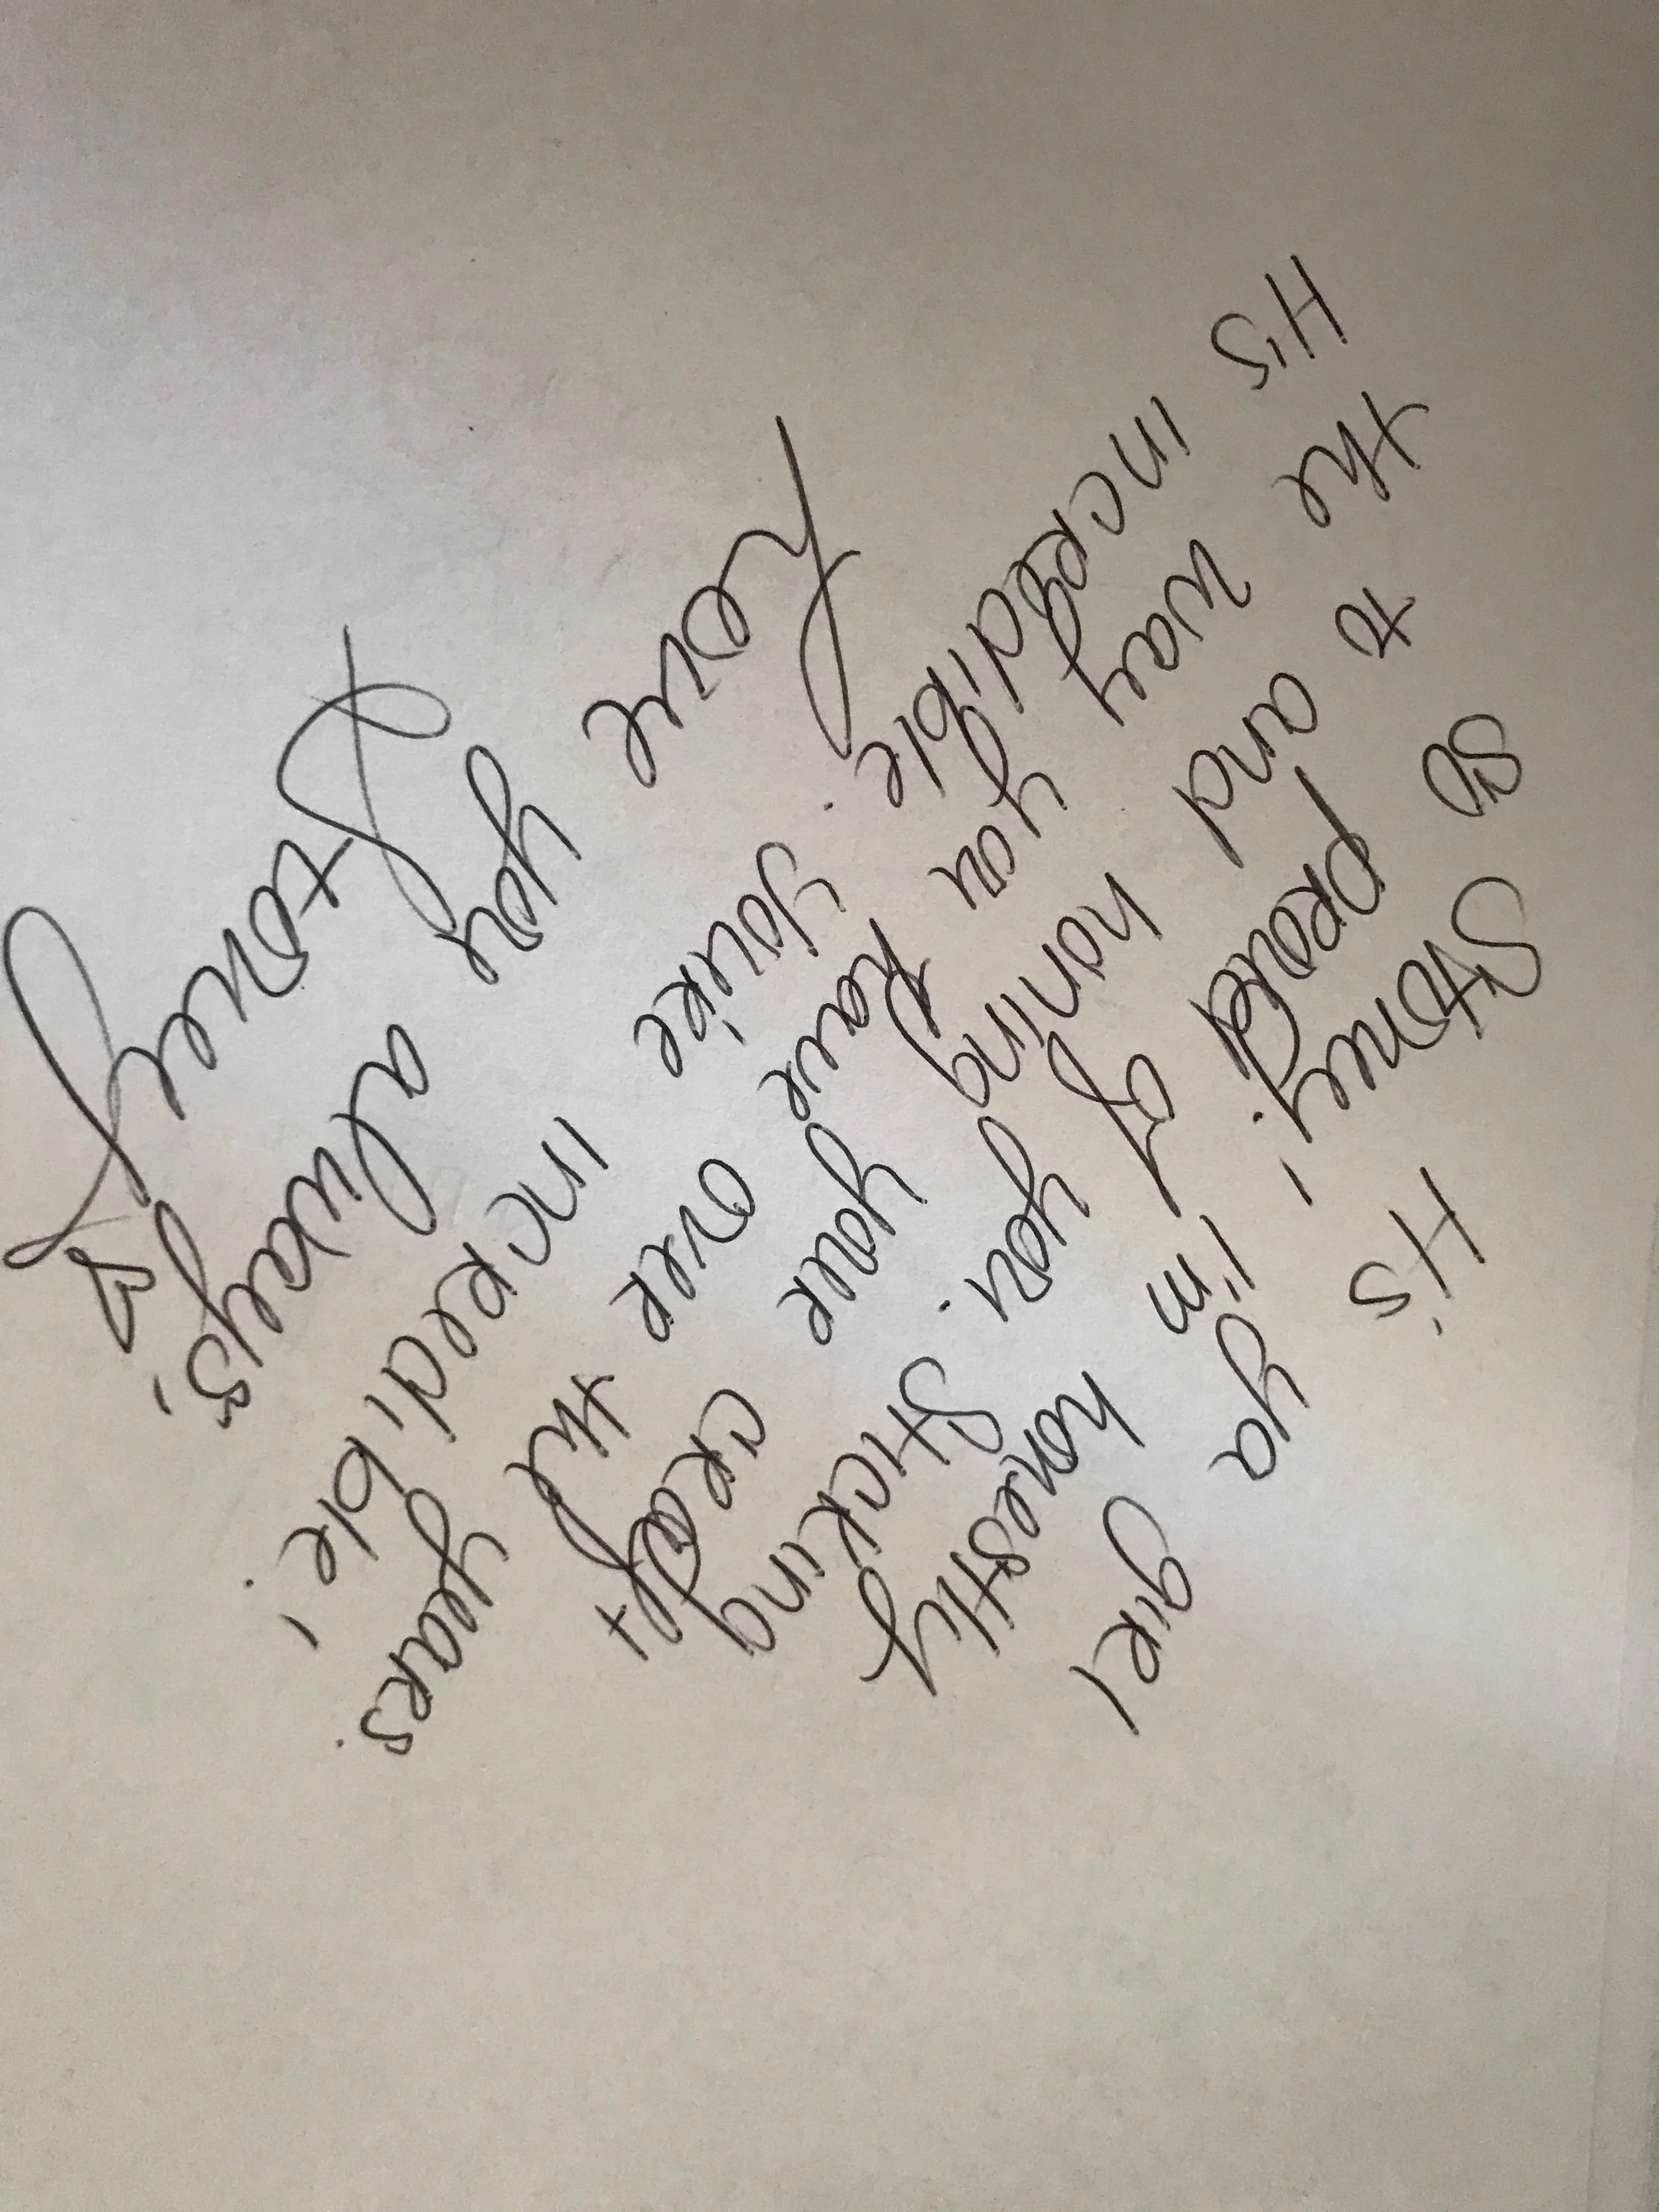 It's ya girl
Stoney! I'm honestly
so proud of you. Sticking
to and honing your craft
the way you have over the years.
It's incredible. You're incredible!
Love you always!
Stoney